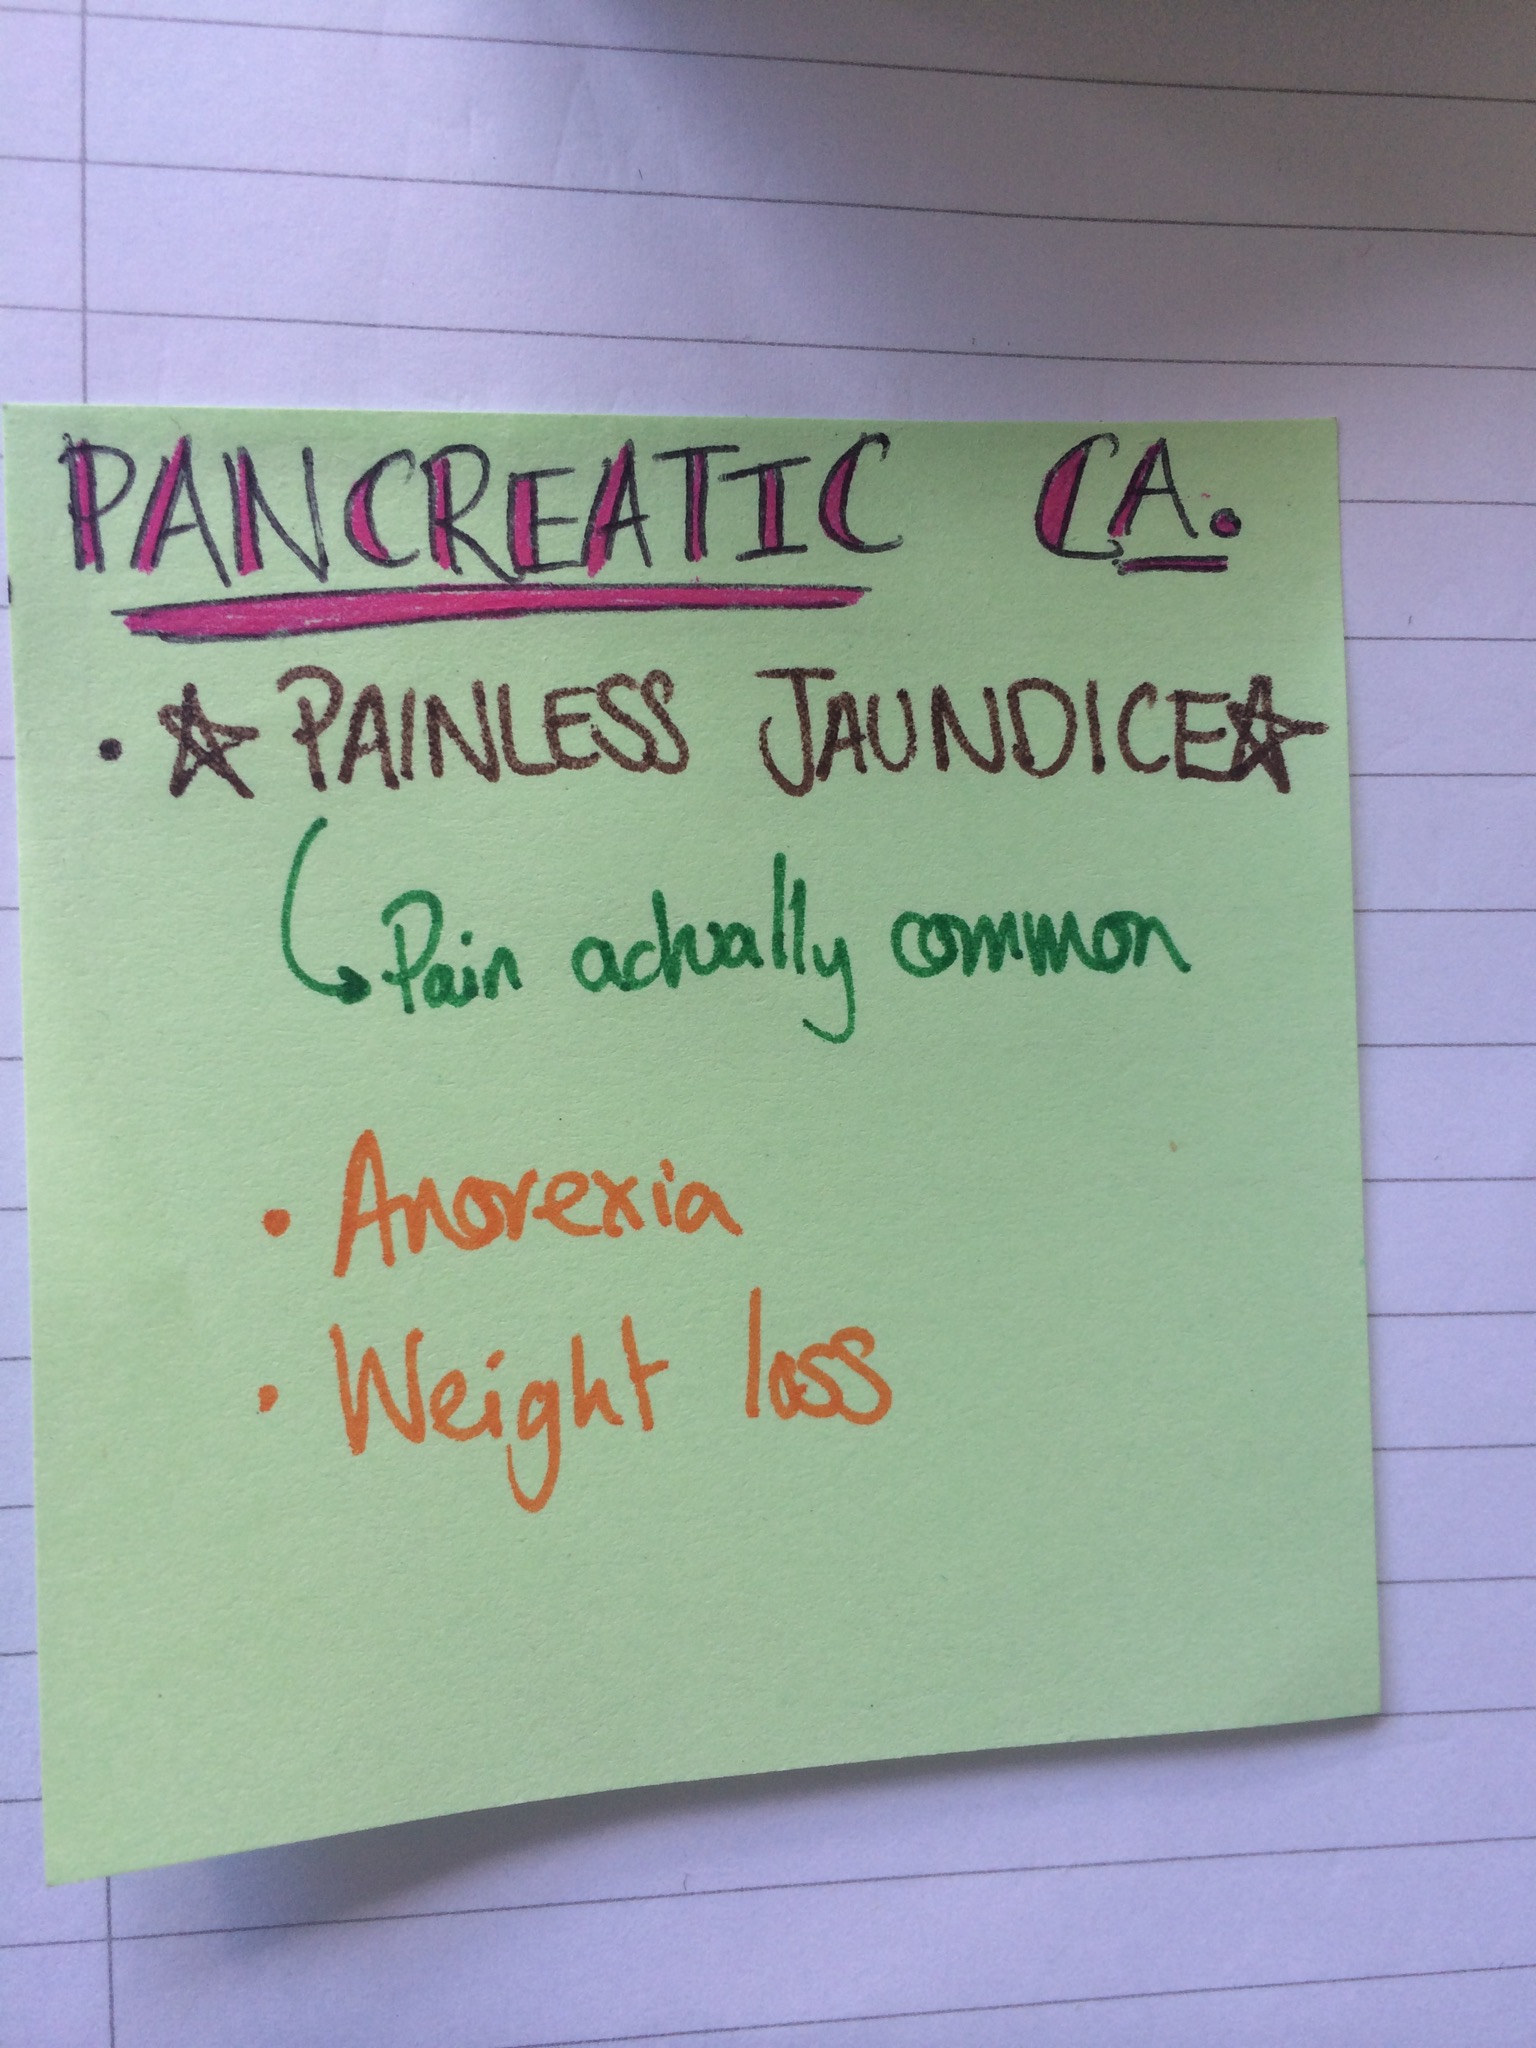 PANCREATIC CA.
• ☆ PAINLESS JAUNDICE ☆
↳ Pain actually common
• Anorexia
• Weight loss